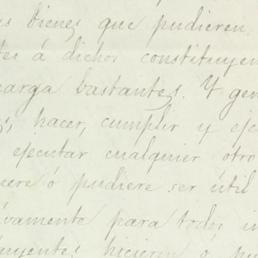 es bienes que pudieren
tes á dichos constituyen
carga bastantes. Y gen
s, hacer, cumplir y eje
ejecutar cualquier otro
ciere ó pudiere ser útil
ivamente para todos in
tuyentes hicieren ó pu